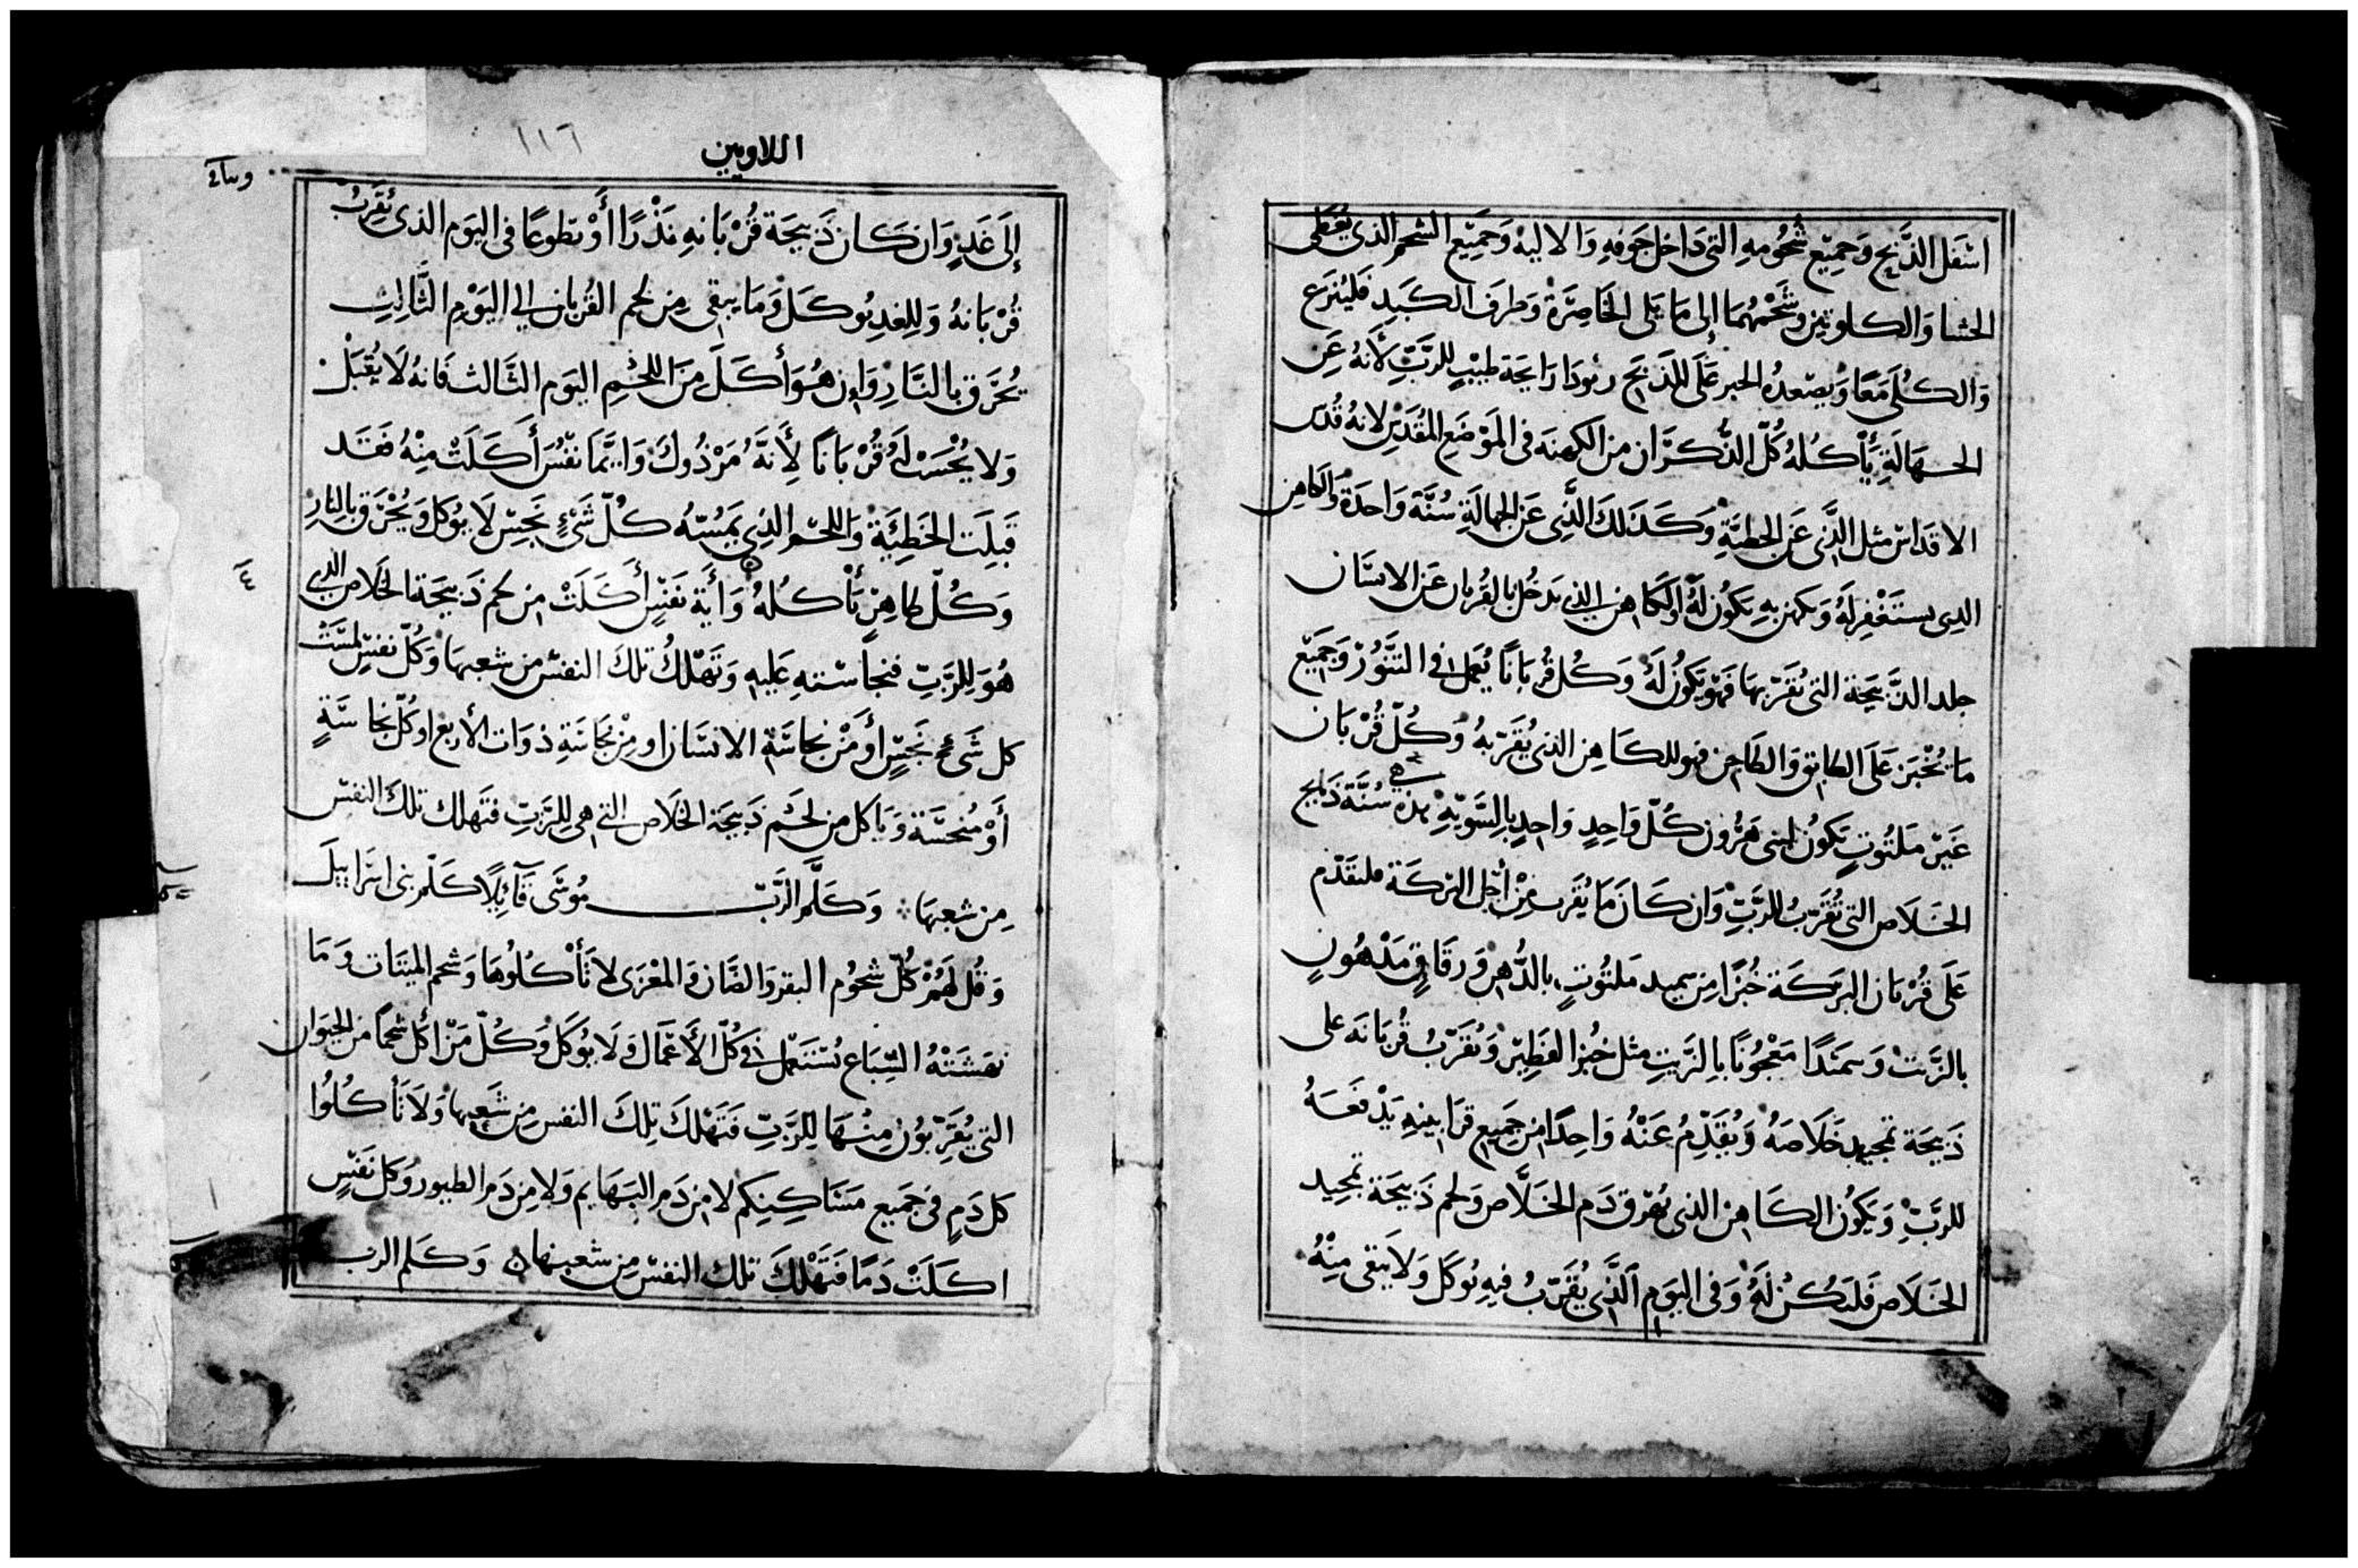 اسفل الذَّبح وَجميِّع شُحُومهِ التى دَاخل جَوفهِ وَالاليهْ وَجَميِّع الشحم الذى يُغطى
الحشا وَالكلوتين وشَحْمُهُمَا إلى مَا يَلى الخَاصِرَةْ وَطرفَ الكَبَدِ فَليُنزَع
وَالكُلَى مَعًا وَيُصّعدُه الحبر عَلَى المَذبَح رَايحَة طيبٍ للرَبّ لأنهُ عَنِ
الجهَالَةِ يَأكُلهُ كُلّ الذُّكرَان من الكهنَه فى المَوْضَعِ المُقدَسِ لانهُ قُدسَ
الاقدَاسْ مثل الذَّى عَنِ الخطيَّةِ وَكَذَلكَ الذَّى عَنِ الجهالَةِ سُنَّة وَاحدَة وَالكاهِن
الدِى يستَغْفِر لَهُ وَيكهن بهِ يَكوُن لَهُ اوالكاهن الذى يَدخُل بالقُربان عَنِ الانسَان
جلد الذَّبيحَة التى يُقرّبهَا فهُو يَكوُن لَهُ وَكُل قُربَانًا يُعمَل فى التنُّورْ وَجَميِّع
مَا يُخْبَز عَلَى الطابق وَالطاجن فهو للكَاهِن الذى يُقَرّبهُ وَكُلّ قُرْبَان
غَيّر مَلتُوتٍ يَكوُن لبنى هَرُون كُلّ وَاحِدٍ وَاحِدٍ بالِسَّويّهْ هذه هى سُنَّة ذَبايح
الخَلَاص التى تُقَرّبُ للرَبّ وَان كَانَ مَا يُقَرب مِنْ أَجل البركَة فليقَدّم
عَلَى قُرْبَان البَركَة خُبْزًا مِن سميد مَلتُوتٍ بالدُّهنِ وَرقَاقٍ مَدْهُونٍ
بالزَّيت وَسمَندًا مَعْجُونًا بالِزَيتِ مثل خبز الفَطِيْر وَيُقَرّبُ قُربَانَه على
ذَبيحَة تمجيد خَلَاصَهُ وَيُقَدِّمُ عَنْهُ وَاحِدًا من جَميِع قرَابينهِ يَدْفعَهُ
للرَبِّ وَيَكوُن الكَاهِن الذى يُهَرّق دَم الخَلَّاص وَلحم ذَبيحَة تمجِيد
الخَلَاص فَليَكُن لَهُ وَفى اليَوم الذَّى يُقَرّبُ فيهِ يُوكَل وَلَا يَبقى مِنْهُ
اللاويين
١١٦
إلَى غَدٍ وَان كَان ذَبيحَة قُرْبَانهِ نَذْرًا أَوْ تطوعًا فى اليَوم الذى يُقَرِبُ
قُرْبَانهُ وَللِغدِ يُوكَل وَمَا يبقى مِن لحم القُربان الى اليَوْمِ الثَّالِثِ
يُحْرَق بالنَّارِ وَان هُوَ أَكَلَ مِنَ اللحْمِ اليَوم الثَّالث فَانهُ لَا يُقبَلْ
وَلا يُحْسَبْ لَهُ قُرْبَانًا لِأَنَهُ مَرْذُوك وَايّمَا نفّسُ أَكَلَتْ مِنْهُ فَقَد
قَبِلَت الخَطِئَيَة وَاللحْم الذِى يَمسّهُ كُلّ شَىْءٍ نَجِسّ لَا يُوكل وَيُحْرَق بالِنارِ
وَكُلّ طاهِرٍ يَأْكُلهُ وَأَية نَفَسٍ أَكَلَتْ مِن لحم ذَبيحَة الخَلاص الذى
هُوَ لِلرَبّ فنجاسْتهِ عَليهِ وَتَهْلكُ تلكَ النفسّ من شعبهَا وَكُلّ نفسِ لمسَّتْ
كل شَىْءٍ نَجسٍّ أَوْ مَنْ نجاسَة الانسَان او مِنْ نجَاسَةِ ذوَات الأربع او كُلّ نجَاسَةٍ
أَوْ مُنجسَّة وَيَاكل من لحَم ذَبيحَة الخَلَاص التى هى لِلرَبِّ فتَهلك تلكَ النفسّ
مِن شعبهَا وَكَلَّمَ الرَّبّ مُوسَى قَائِلًا كَلّم بنى اسرَاييلَ
وَقُل لَهُمْ كُلّ شحُوُم البقر وَالضَّان وَالمعْزَى لا تَأْكُلُوهَا وَشحم الميتَات وَمَا
نهَشَتْهُ السِّبَاع يُسْتَعَمل فى كُلّ الأَعّمَال وَلَا يُوكَل وَكُلّ مَنْ اكل شحمًا من الحيَوان
التى يُقَرِّبوُن مِنْهَا لِلرَبّ فَتَهْلكَ تِلكَ النفس مِن شَعبِهَا وَلَا تَأكُلُوا
كل دَمٍ فى جَميع مَسَاكِنِكم لا من دَم البَهَايم وَلا مِن دَم الطيور وَكل نَفَسٍ
اكَلَتْ دَمًا فَتَهْلكَ تلك النفسّ مِن شعبهَا وَكَلم الرب